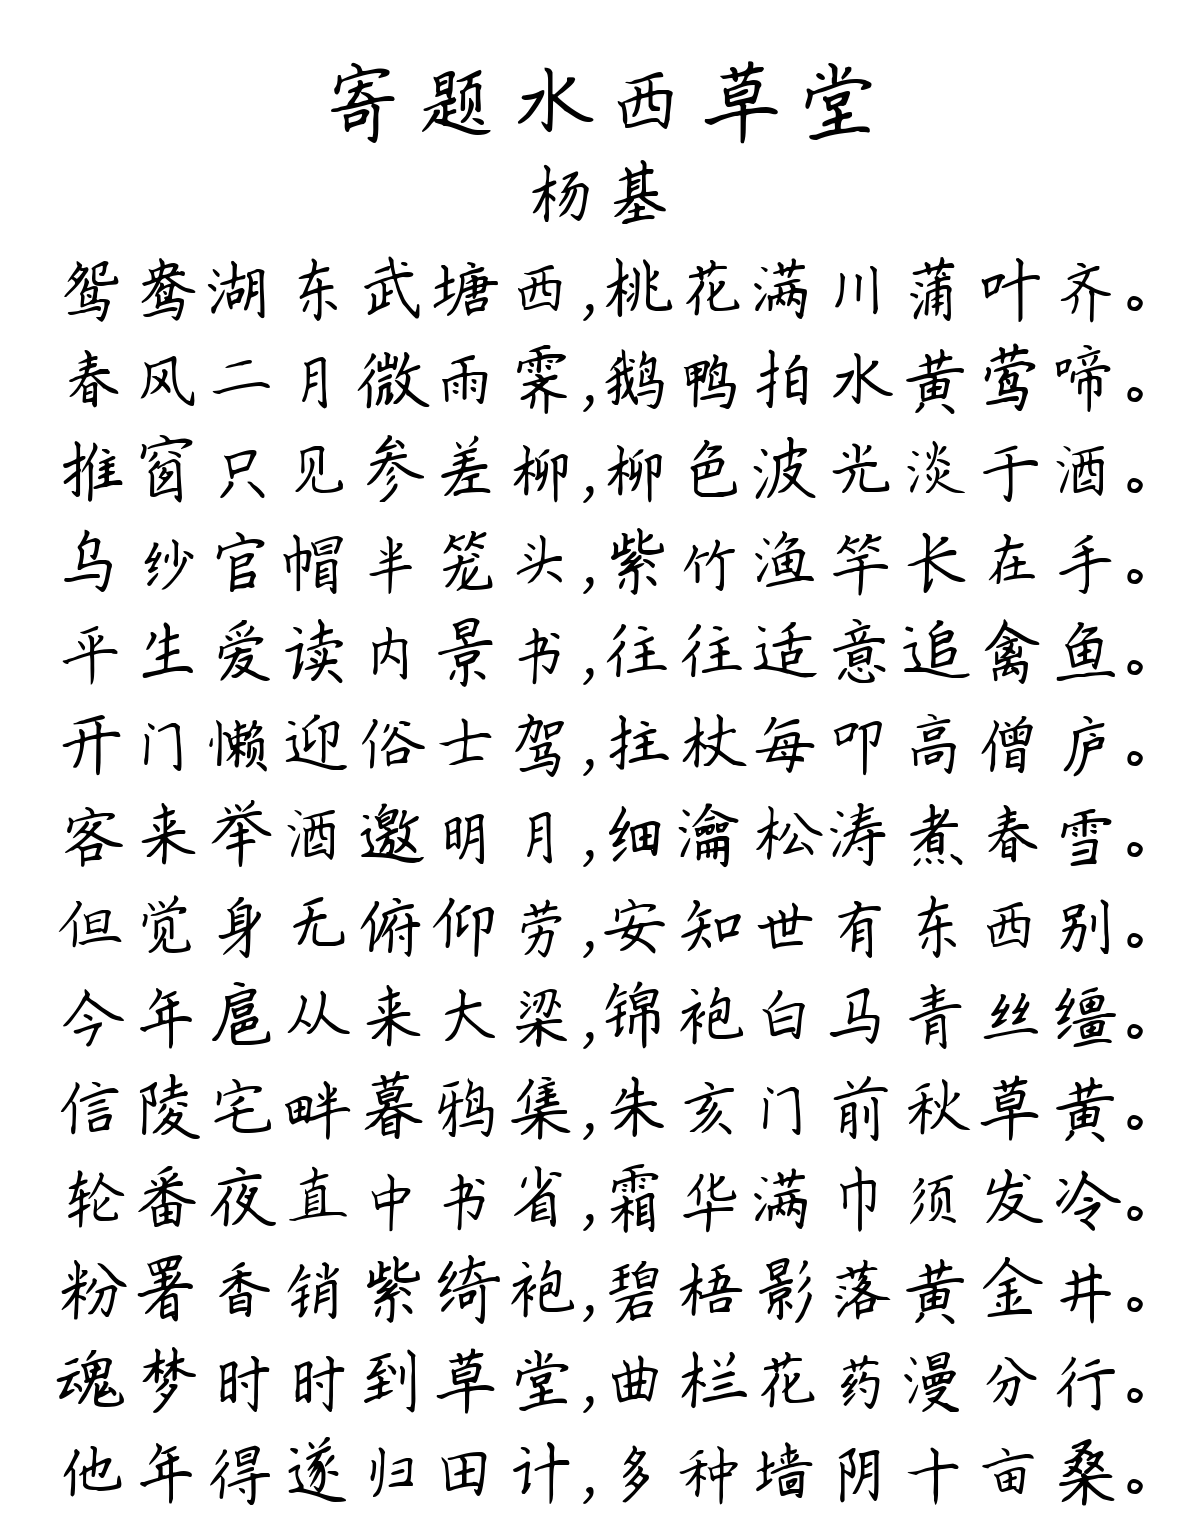 寄题水西草堂
杨基
鸳鸯湖东武塘西,桃花满川蒲叶齐。
春风二月微雨霁,鹅鸭拍水黄莺啼。
推窗只见参差柳,柳色波光淡于酒。
乌纱官帽半笼头,紫竹渔竿长在手。
平生爱读内景书,往往适意追禽鱼。
开门懒迎俗士驾,拄杖每叩高僧庐。
客来举酒邀明月,细瀹松涛煮春雪。
但觉身无俯仰劳,安知世有东西别。
今年扈从来大梁,锦袍白马青丝缰。
信陵宅畔暮鸦集,朱亥门前秋草黄。
轮番夜直中书省,霜华满巾须发冷。
粉署香销紫绮袍,碧梧影落黄金井。
魂梦时时到草堂,曲栏花药漫分行。
他年得遂归田计,多种墙阴十亩桑。